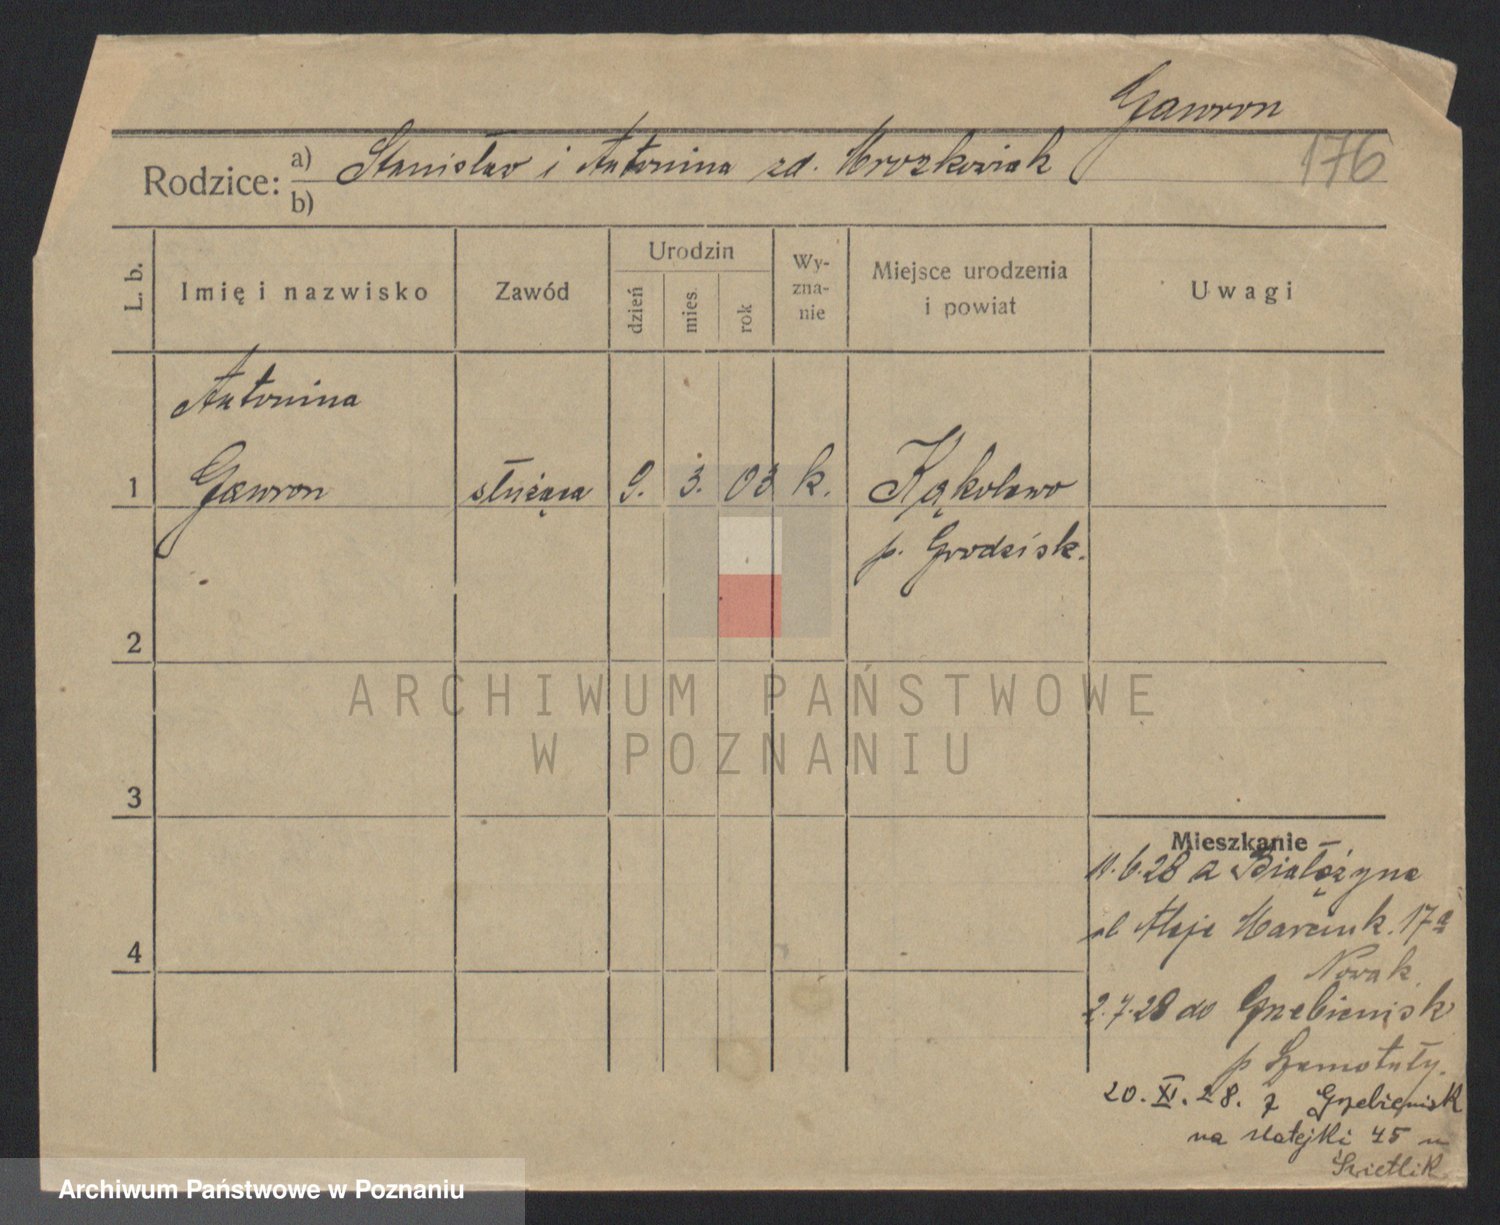 Gawron
176
Rodzice: a) Stanisław i Antonina zd. Mrozkowiak
b)
L. b.
Imię i nazwisko
Zawód
Urodzin
dzień
mies.
rok
Wy-
zna-
nie
Miejsce urodzenia
i powiat
Uwagi
Antonina
1 Gawron służąca 9. 3. 03 k. Kąkolewo
p. Grodzisk.
2
ARCHIWUM PAŃSTWOWE
W POZNANIU
3
Mieszkanie
11.6.28 z Białężyna
Aleje Marcink. 17a
Nowak
4
2.7.28 do Grzebienisk
p Szamotuły.
20.XI.28. z Grzebienisk
na Matejki 45
Świetlik
Archiwum Państwowe w Poznaniu